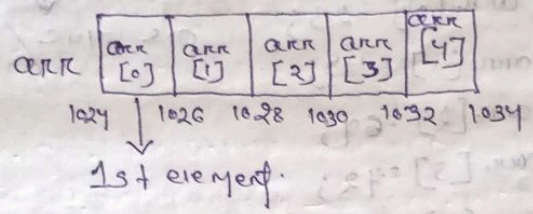 arr arr [0] arr [1] arr [2] arr [3] arr [4]
1024 1026 1028 1030 1032 1034
1st element.